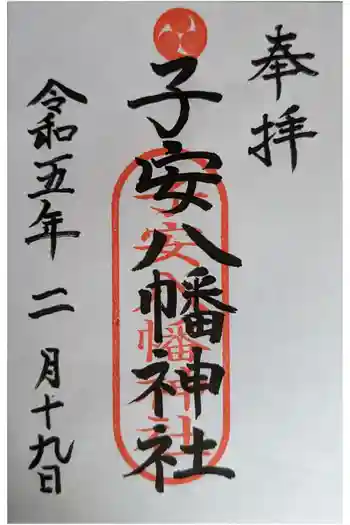 奉拝
子安八幡神社
子安八幡神社
令和五年二月十九日